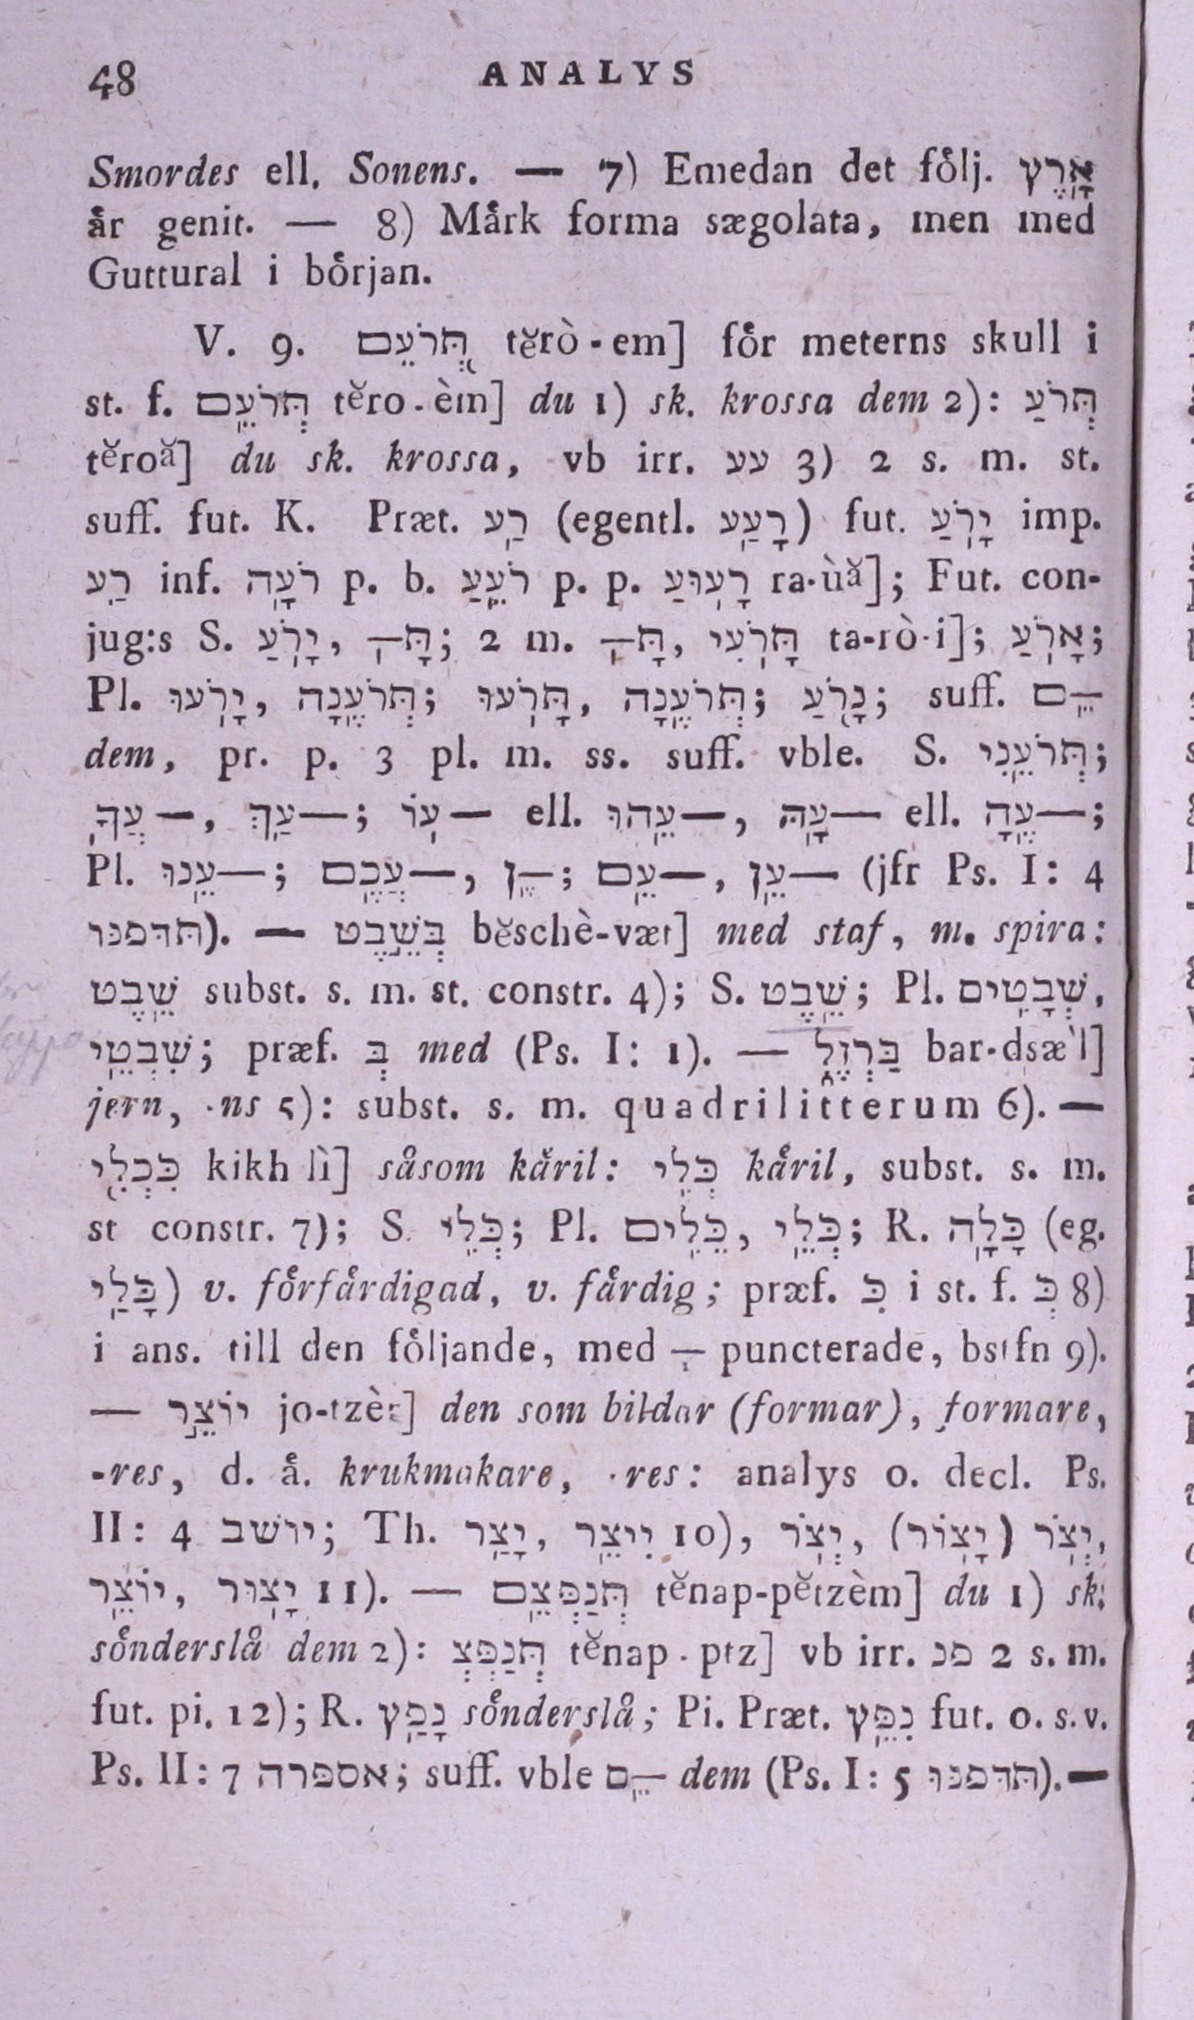 48 ANALYS
Smordes ell. Sonens. — 7) Emedan det följ. אָרֶץ
år genit. — 8) Mårk forma sægolata, men med
Guttural i början.
V. 9. תְּרֹעֵם tĕrò-em] för meterns skull i
st. f. תְּרֹעֵם tĕro-èm] du 1) sk. krossa dem 2): תְּרֹעַ
tĕroă] du sk. krossa, vb irr. עע 3) 2 s. m. st.
suff. fut. K. Præt. רַע (egentl. רָעַע) fut. יָרֹעַ imp.
רַע inf. רֹעָה p. b. רֹעֵעַ p. p. רָעוּעַ ra-ùă]; Fut. con-
jug:s S. יָרֹעַ, תָּ—; 2 m. תָּ—, תָּרֹעִי ta-rò-i]; אָרֹעַ;
Pl. יָרֹעוּ, תְּרֹעֶנָה; תָּרֹעוּ, תְּרֹעֶנָה; נָרֹעַ; suff. —ֵם
dem, pr. p. 3 pl. m. ss. suff. vble. S. תְּרֹעֵנִי;
—עֲךָ, —עַךְ; —עוֹ ell. —עֵהוּ, —עָהּ ell. —עֶהָ;
Pl. —עֵנוּ; —עֲכֶם, —ֶן; —עֵם, —עֵן (jfr Ps. I: 4
תּדּפנּוּ). — בְּשֵׁבֶט bĕschè-væt] med staf, m. spira:
שֵׁבֶט subst. s. m. st. constr. 4); S. שֵׁבֶט; Pl. שְׁבָטִים,
שִׁבְטֵי; præf. בְּ med (Ps. I: 1). — בַּרְזֶל bar-dsæ̀l]
jern, -ns 5): subst. s. m. quadrilitterum 6). —
כִּכְלִי kikh lì] såsom käril: כְּלִי käril, subst. s. m.
st constr. 7); S. כְּלִי; Pl. כֵּלִים, כְּלֵי; R. כָּלָה (eg.
כָּלַי) v. förfärdigad, v. färdig; præf. כִּ i st. f. כְּ 8)
i ans. till den följande, med —ְ puncterade, bstfn 9).
— יוֹצֵר jo-tzèr] den som bildar (formar), formare,
-res, d. ä. krukmakare, -res: analys o. decl. Ps.
II: 4 יושׁב; Th. יָצַר, יִיצֵר 10), יְצֹר, (יָצוֹר) יְצֹר,
יוֹצֵר, יָצוּר 11). — תְּנַפְּצֵם tĕnap-pĕtzèm] du 1) sk:
sönderslå dem 2): תְּנַפְּצְ tĕnap-ptz] vb irr. פנ 2 s. m.
fut. pi. 12); R. נָפַץ sönderslå; Pi. Præt. נִפֵּץ fut. o. s. v.
Ps. II: 7 אספּרה; suff. vble —ֵם dem (Ps. I: 5 תּדּפנּוּ). —